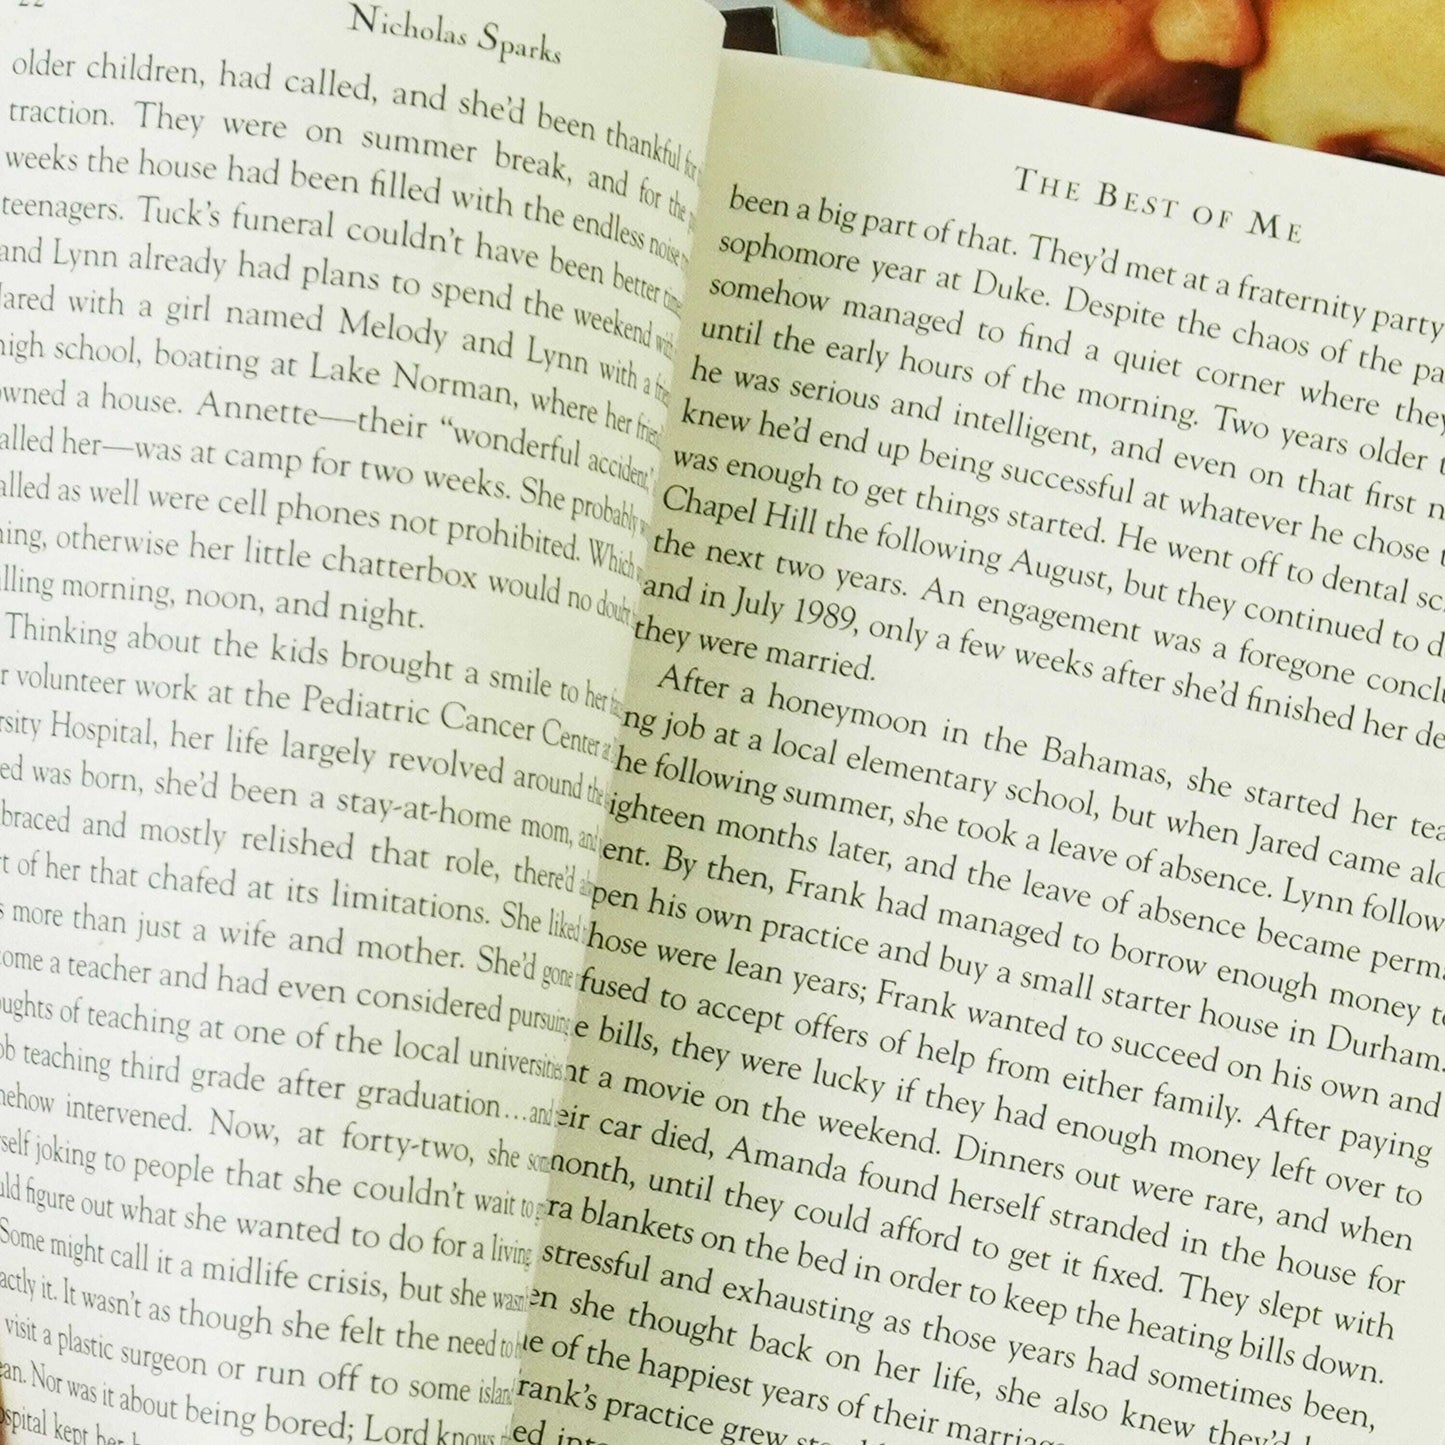 22
Nicholas Sparks
older children, had called, and she'd been thankful for
traction. They were on summer break, and for the
weeks the house had been filled with the endless noise
teenagers. Tuck's funeral couldn't have been better
and Lynn already had plans to spend the weekend
Jared with a girl named Melody and Lynn with a
high school, boating at Lake Norman, where her
owned a house. Annette—their "wonderful accident,"
called her—was at camp for two weeks. She probably
called as well were cell phones not prohibited. Which
otherwise her little chatterbox would no doubt
morning, noon, and night.
Thinking about the kids brought a smile to her
volunteer work at the Pediatric Cancer Center at
Hospital, her life largely revolved around the
was born, she'd been a stay-at-home mom, and
and mostly relished that role, there'd
of her that chafed at its limitations. She liked
more than just a wife and mother. She'd gone
a teacher and had even considered pursuing
of teaching at one of the local universities
teaching third grade after graduation...and
intervened. Now, at forty-two, she
joking to people that she couldn't wait to
figure out what she wanted to do for a living.
Some might call it a midlife crisis, but she wasn't
it. It wasn't as though she felt the need to
visit a plastic surgeon or run off to some island
Nor was it about being bored; Lord knows
kept her
The Best of Me
been a big part of that. They'd met at a fraternity party
sophomore year at Duke. Despite the chaos of the
somehow managed to find a quiet corner where they
until the early hours of the morning. Two years older
he was serious and intelligent, and even on that first
knew he'd end up being successful at whatever he chose
was enough to get things started. He went off to dental
Chapel Hill the following August, but they continued to
the next two years. An engagement was a foregone
and in July 1989, only a few weeks after she'd finished her
they were married.
After a honeymoon in the Bahamas, she started her
ng job at a local elementary school, but when Jared came
he following summer, she took a leave of absence. Lynn
ighteen months later, and the leave of absence became
ent. By then, Frank had managed to borrow enough money
pen his own practice and buy a small starter house in Durham.
hose were lean years; Frank wanted to succeed on his own and
fused to accept offers of help from either family. After paying
e bills, they were lucky if they had enough money left over to
nt a movie on the weekend. Dinners out were rare, and when
eir car died, Amanda found herself stranded in the house for
month, until they could afford to get it fixed. They slept with
ra blankets on the bed in order to keep the heating bills down.
stressful and exhausting as those years had sometimes been,
en she thought back on her life, she also knew they'd
e of the happiest years of their
rank's practice grew
ed into